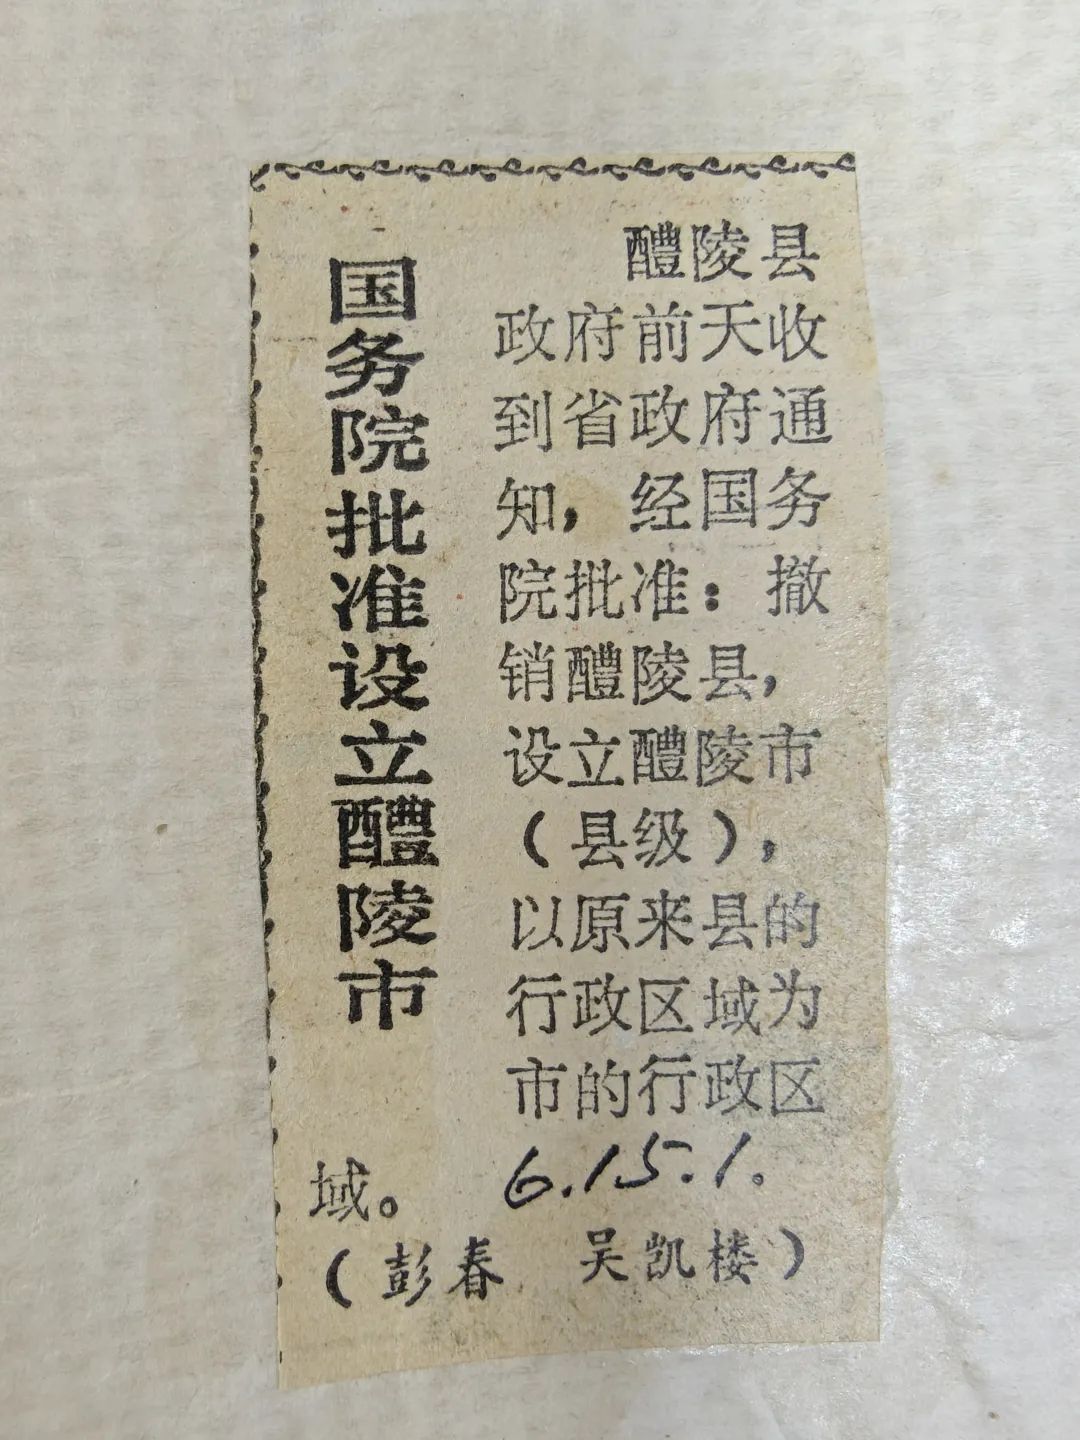 国务院批准设立醴陵市
醴陵县
政府前天收
到省政府通
知，经国务
院批准：撤
销醴陵县，
设立醴陵市
（县级），
以原来县的
行政区域为
市的行政区
域。 6.15.1.
（彭春 吴凯楼）